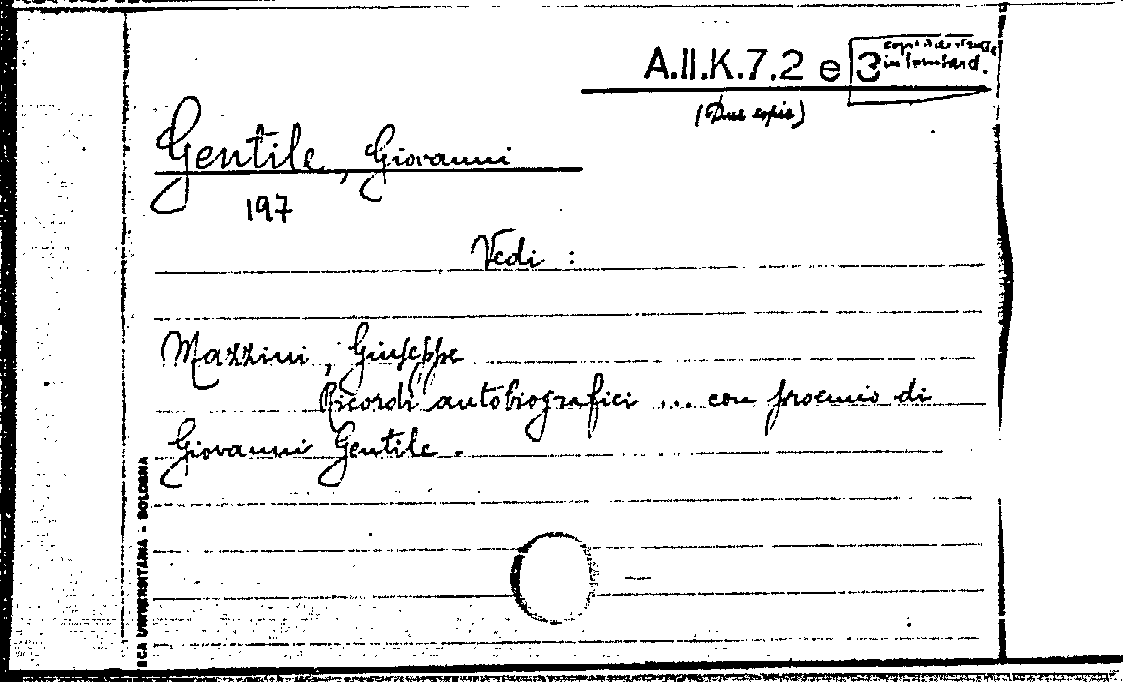 A.II.K.7.2 e 3
in bombard.
(Due copie)
Gentile, Giovanni
197
Vedi :
Mazzini, Giuseppe
Ricordi autobiografici ... con proemio di
Giovanni Gentile.
ECA UNIVERSITARIA - BOLOGNA